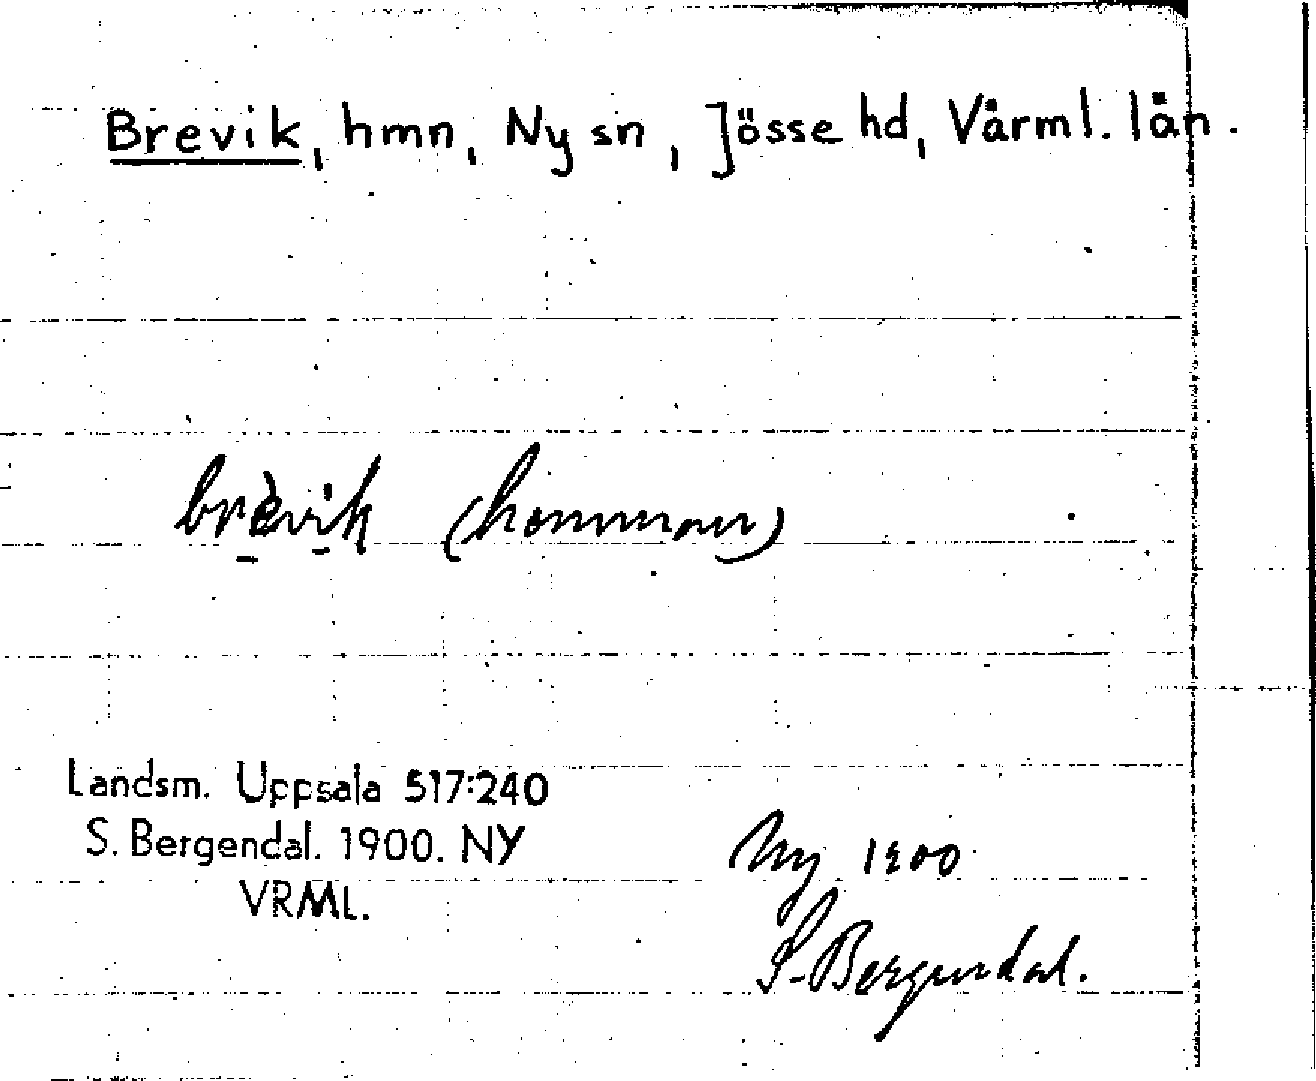 Brevik, hmn, Ny sn, Jösse hd, Värml. län.
brèvik (hemman)
Landsm. Uppsala 517:240
S. Bergendal. 1900. NY
VRML.
Ny 1900
S. Bergendal.